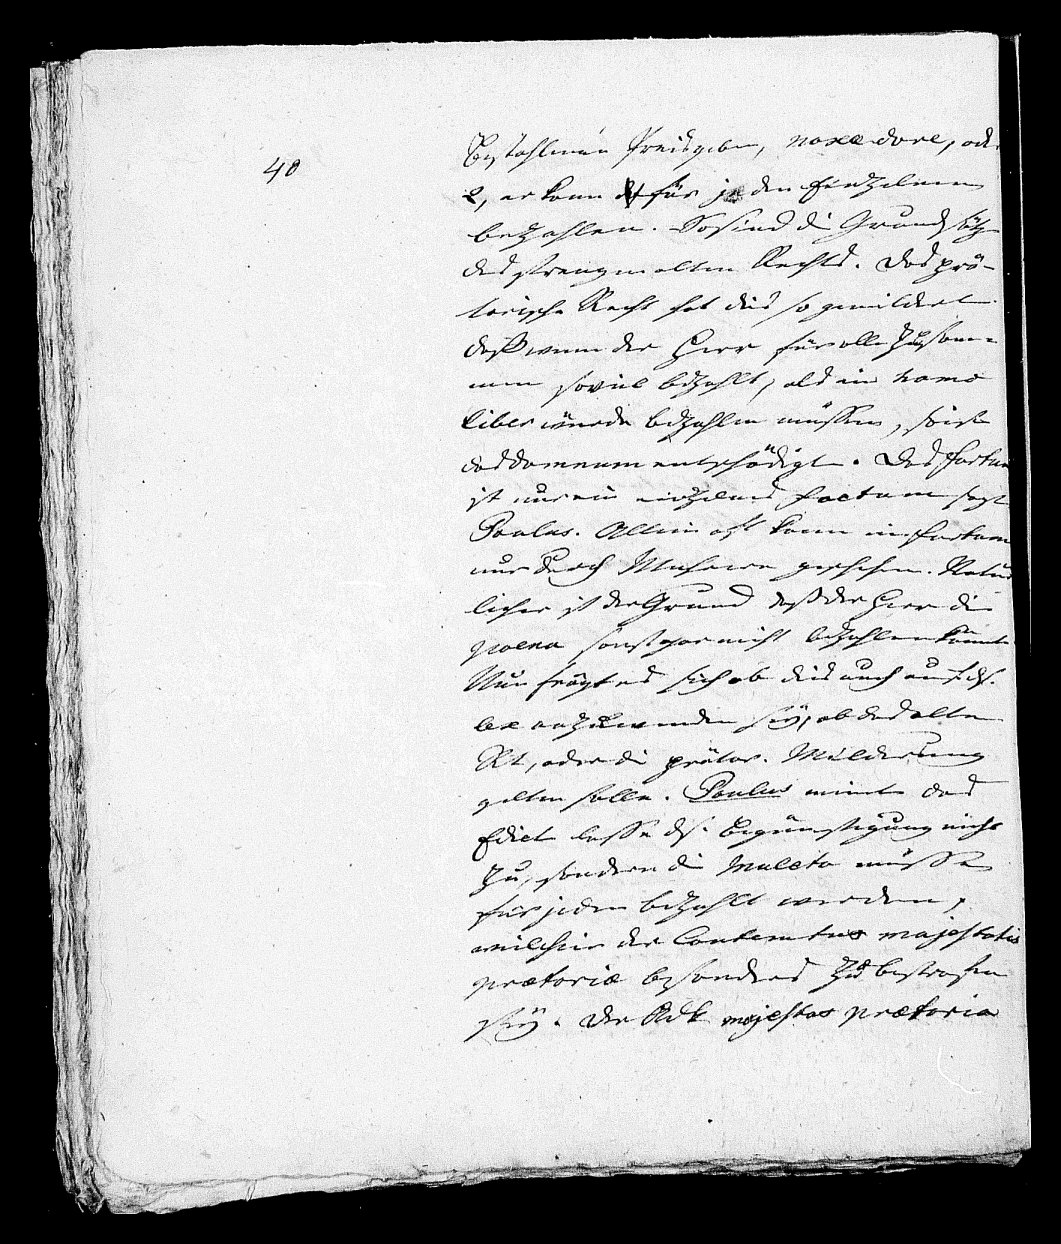 40
Bestohlenen Preisgeben, noxæ dare, oder
2, er kann für jeden Einzelnen
bezahlen. So sind di Grundsätze
des strengen alten Rechts. Das prä-
torische Recht hat dies so gemildert
daß wenn der Herr für alle Zusam-
men soviel bezahlt, als ein homo
liber würde bezahlen müssen, so ist
das damnum entschädigt. Das furtum
ist nur ein einzelnes factum sagt
Paulus. Allein oft kann ein furtum
nur durch Mehrere geschehen. Natür
licher ist der Grund daß der Herr di
poena sonst gar nicht bezahlen könnte.
Nun frägt es sich ob dies auch auf ds.
anzuwenden sey, ob das alte
Rt, oder di prätor. Milderung
gelten solle. Paulus meint das
Edict lasse ds. Begünstigung nicht
zu, sondern di Mulcta müsse
für jeden bezahlt werden,
weil hier der Contemtus majestatis
prætoriæ besonders zu bestrafen
sey. Der Adk majestas prætoria